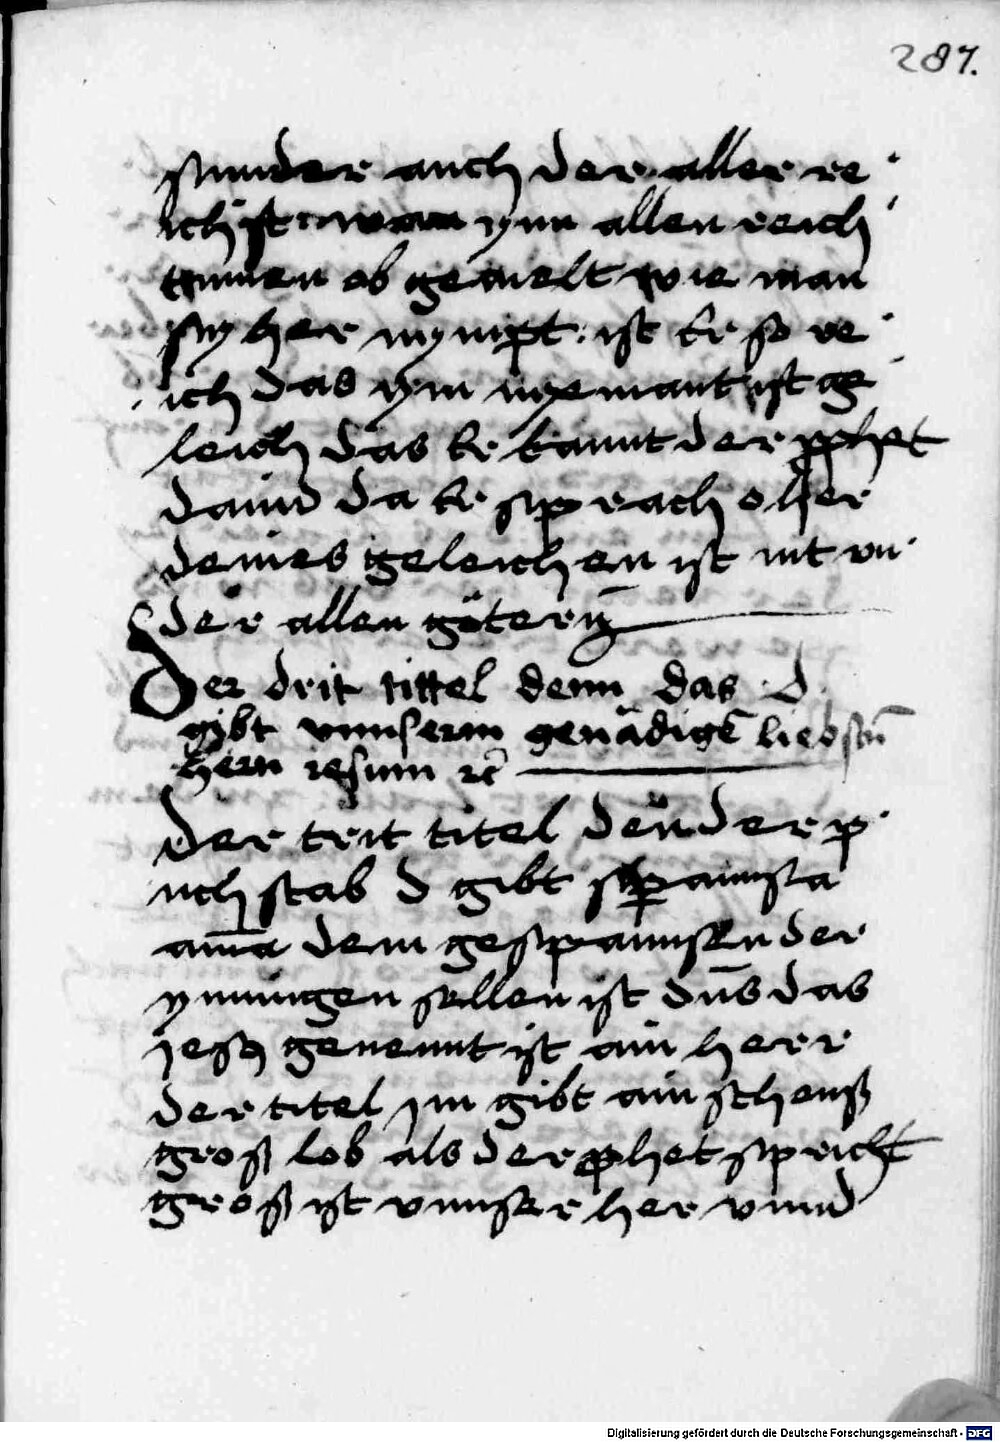 287.
sunder auch der aller re
ichist wan ynn allen reich
tumen ob gemelt wie man
sy her nympt: ist er so re
ich das ym nyemant ist ge
leich das er kannt der pphet
dauid da er sprach o her
deines geleichen ist nit vn
der allen göteren
Der drit tittel denn das d
gibt vnnserm genädigē liebstn̄
hern iesum ꝛc̄
Der trit titel den der p
uch stab d gibt
dem gespannsen der
ynnigen sellen ist dn̄s das
jesus genennt ist ain herr
der titel jm gibt ain schens
gross lob als der phet spricht
gross ist vnnser her vnnd
Digitalisierung gefördert durch die Deutsche Forschungsgemeinschaft - DFG